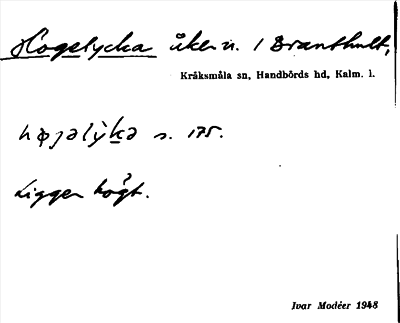 Högelycka åker n. / Branthult,
Kråksmåla sn, Handbörds hd, Kalm. l.
s. 175.
Ligger högt.
Ivar Modéer 1948